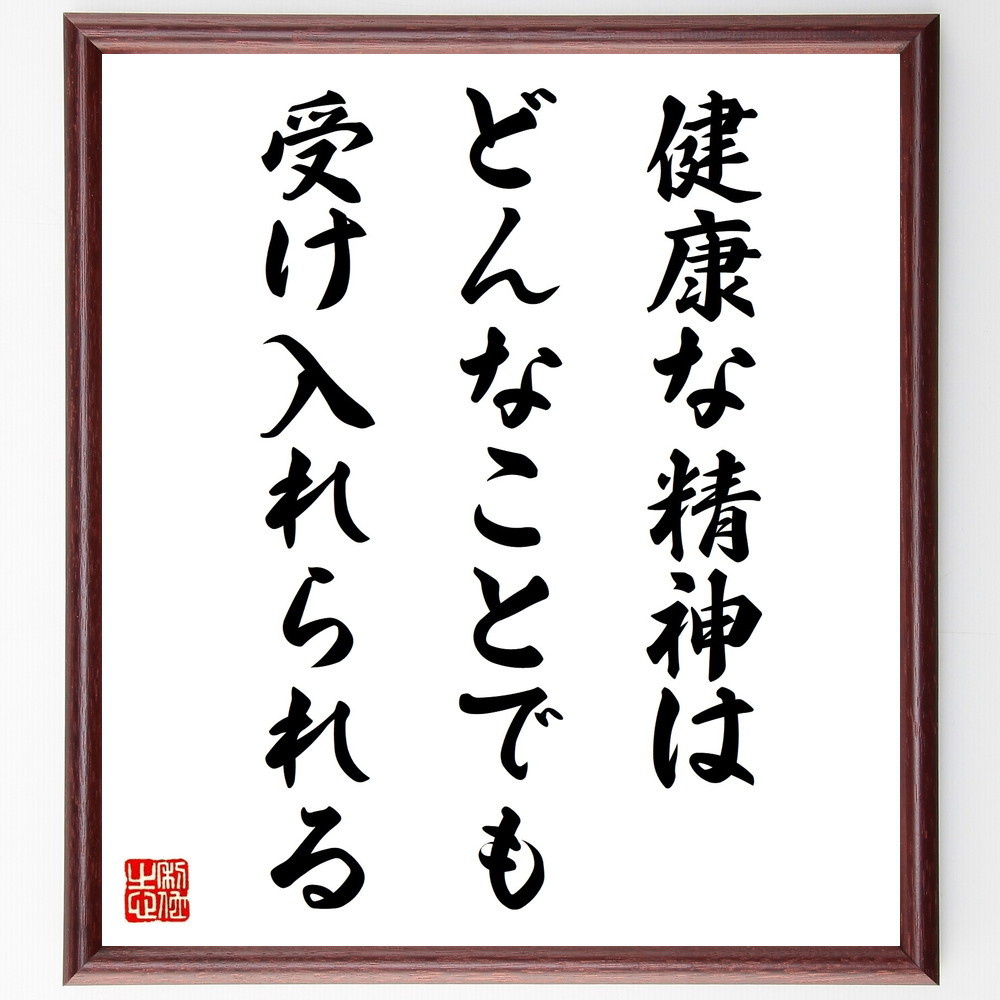 健康な精神は
どんなことでも
受け入れられる